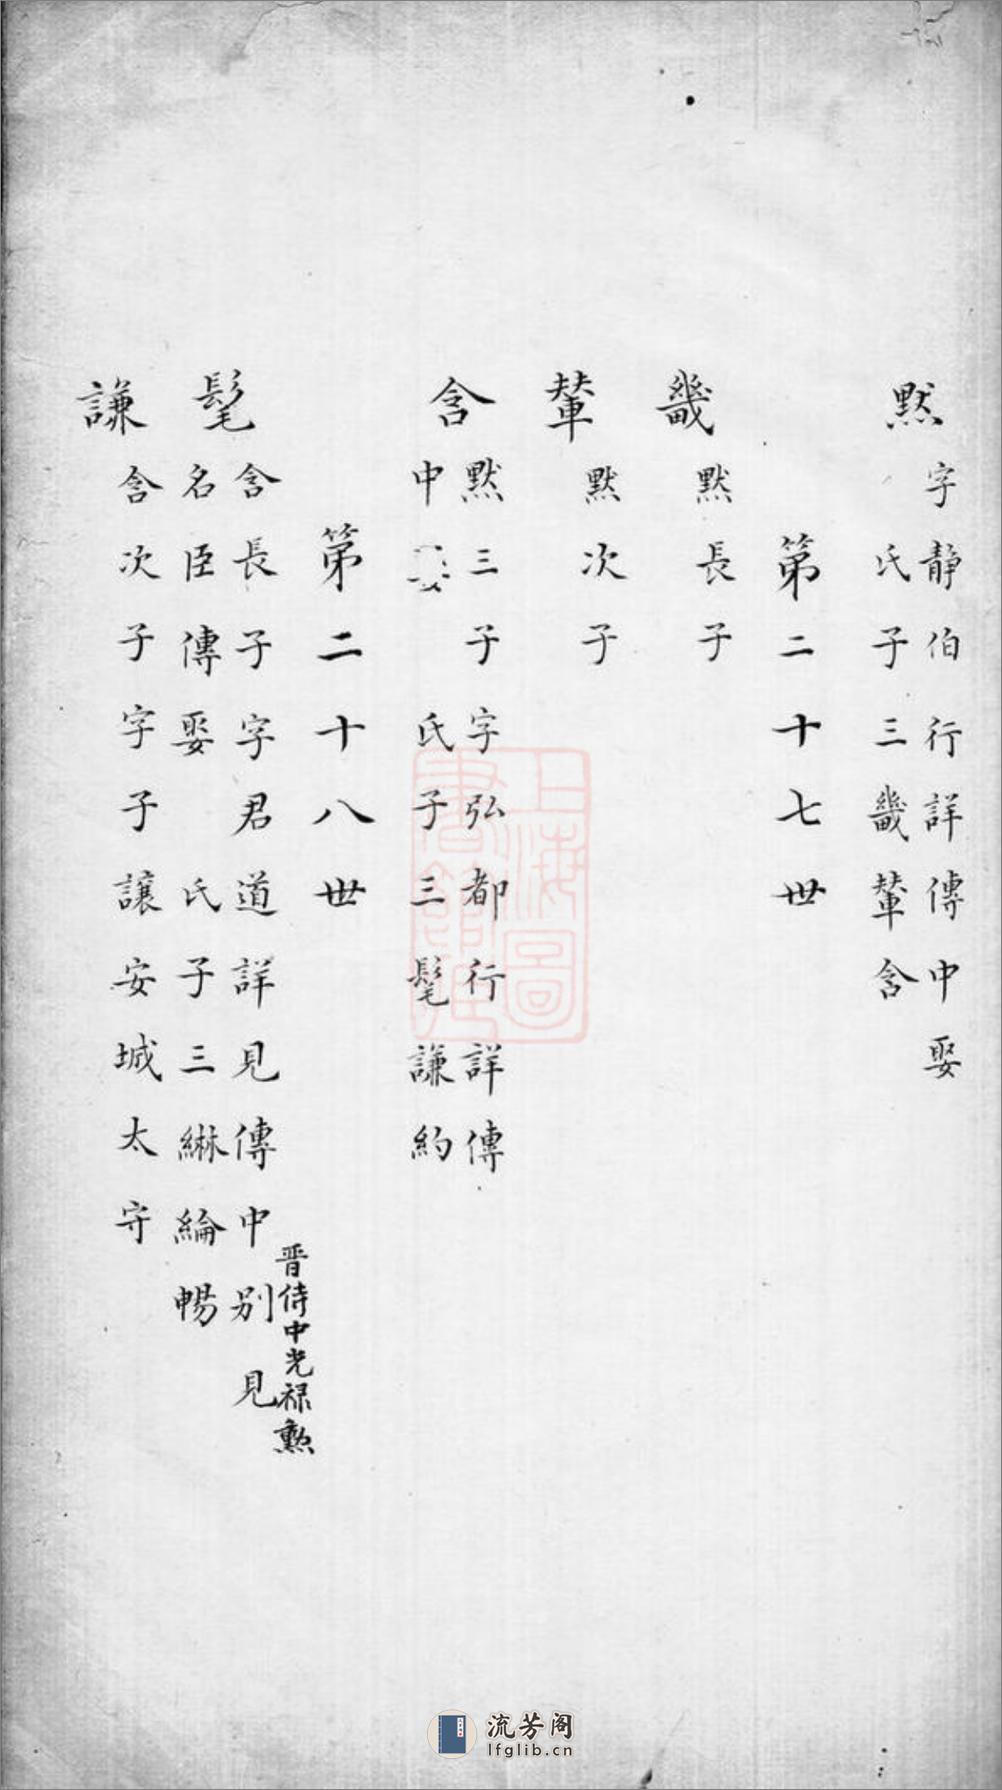 默
字静伯行詳傳中娶
氏子三畿輦含
第二十七世
畿
默長子
輦
默次子
含
默三子字弘都行詳傳
中娶 氏子三髦謙約
第二十八世
髦
晋侍中光禄勲
含長子字君道詳見傳中別見
名臣傳娶 氏子三綝綸暢
謙
含次子字子讓安城太守
上海圖
書館藏
流芳阁
lfglib.cn